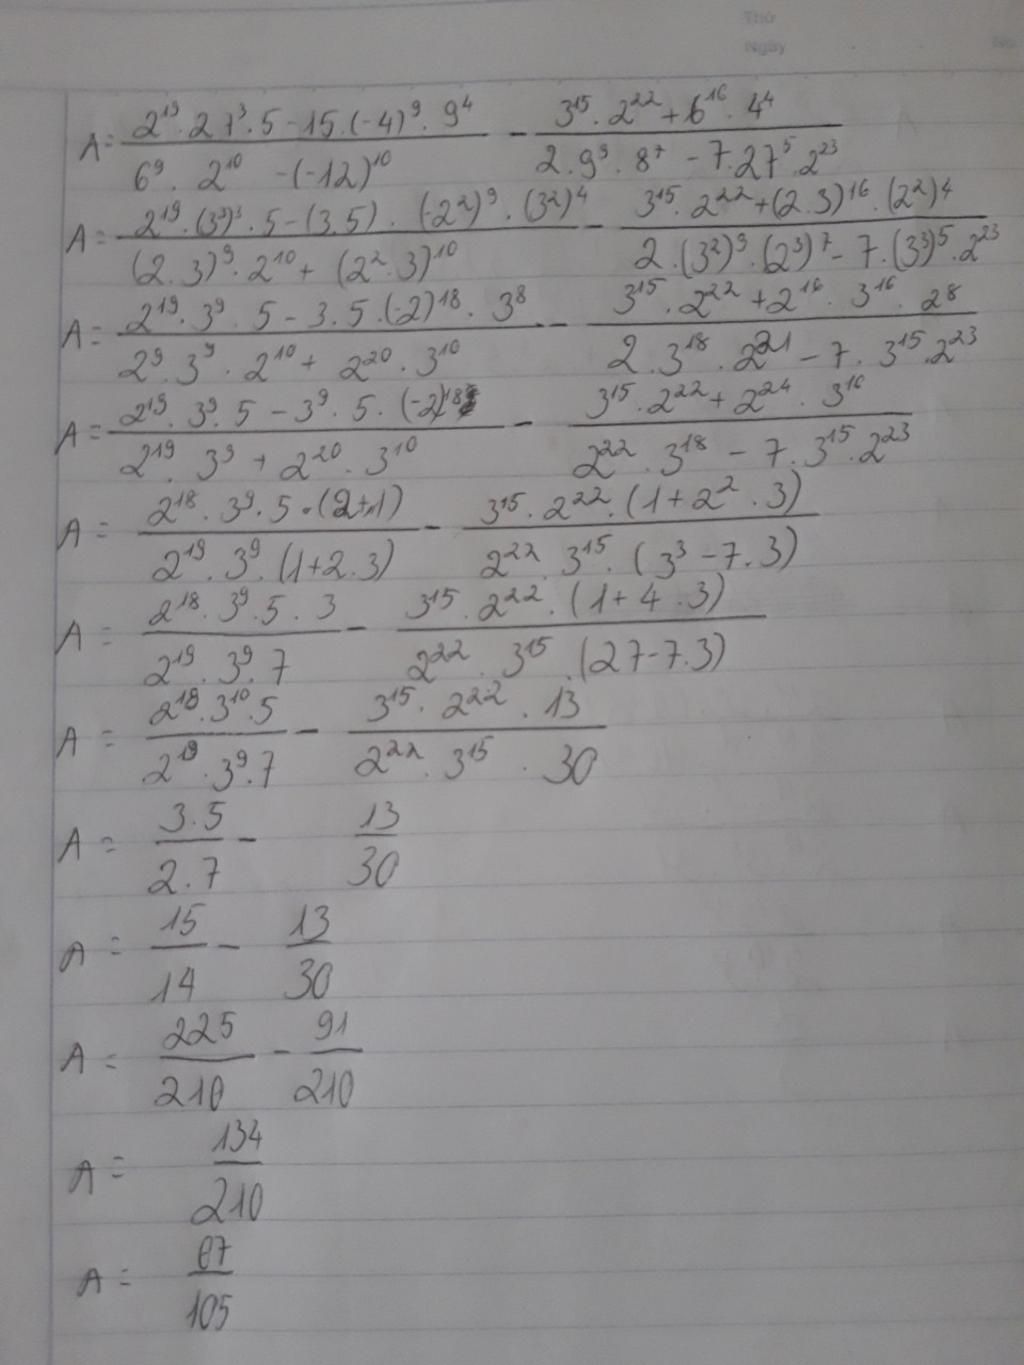 Thứ
Ngày
No
A = \frac{2^{19} \cdot 27^3 \cdot 5 - 15 \cdot (-4)^9 \cdot 9^4}{6^9 \cdot 2^{10} - (-12)^{10}} - \frac{3^{15} \cdot 2^{22} + 6^{16} \cdot 4^4}{2 \cdot 9^9 \cdot 8^7 - 7 \cdot 27^5 \cdot 2^{23}}
A = \frac{2^{19} \cdot (3^3)^3 \cdot 5 - (3.5) \cdot (-2^2)^9 \cdot (3^2)^4}{(2.3)^9 \cdot 2^{10} + (2^2 \cdot 3)^{10}} - \frac{3^{15} \cdot 2^{22} + (2.3)^{16} \cdot (2^2)^4}{2 \cdot (3^2)^9 \cdot (2^3)^7 - 7 \cdot (3^3)^5 \cdot 2^{23}}
A = \frac{2^{19} \cdot 3^9 \cdot 5 - 3.5 \cdot (-2)^{18} \cdot 3^8}{2^9 \cdot 3^9 \cdot 2^{10} + 2^{20} \cdot 3^{10}} - \frac{3^{15} \cdot 2^{22} + 2^{16} \cdot 3^{16} \cdot 2^8}{2 \cdot 3^{18} \cdot 2^{21} - 7 \cdot 3^{15} \cdot 2^{23}}
A = \frac{2^{19} \cdot 3^9 \cdot 5 - 3^9 \cdot 5 \cdot (-2)^{18}}{2^{19} \cdot 3^9 + 2^{20} \cdot 3^{10}} - \frac{3^{15} \cdot 2^{22} + 2^{24} \cdot 3^{16}}{2^{22} \cdot 3^{18} - 7 \cdot 3^{15} \cdot 2^{23}}
A = \frac{2^{18} \cdot 3^9 \cdot 5 \cdot (2+1)}{2^{19} \cdot 3^9 \cdot (1+2.3)} - \frac{3^{15} \cdot 2^{22} \cdot (1+2^2 \cdot 3)}{2^{22} \cdot 3^{15} \cdot (3^3 - 7.3)}
A = \frac{2^{18} \cdot 3^9 \cdot 5 \cdot 3}{2^{19} \cdot 3^9 \cdot 7} - \frac{3^{15} \cdot 2^{22} \cdot (1+4.3)}{2^{22} \cdot 3^{15} \cdot (27-7.3)}
A = \frac{2^{18} \cdot 3^{10} \cdot 5}{2^{19} \cdot 3^9 \cdot 7} - \frac{3^{15} \cdot 2^{22} \cdot 13}{2^{22} \cdot 3^{15} \cdot 30}
A = \frac{3.5}{2.7} - \frac{13}{30}
A = \frac{15}{14} - \frac{13}{30}
A = \frac{225}{210} - \frac{91}{210}
A = \frac{134}{210}
A = \frac{67}{105}